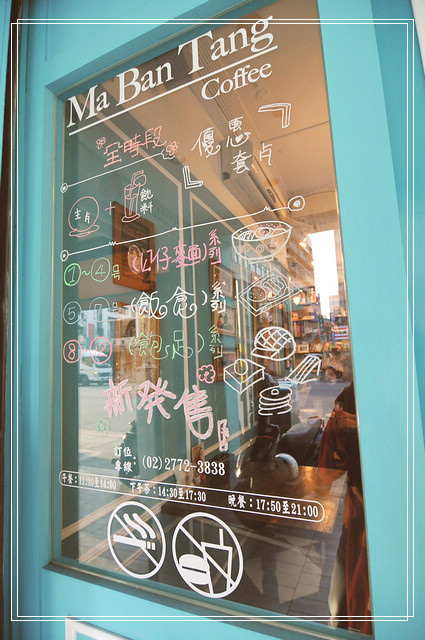 Ma Ban Tang
Coffee
全時段
優惠
套卡
主卡 + 飲料
①~④號 (公仔麵)系列
⑤~⑦號 (飯食)系列
⑧~⑫ (飽足)系列
新発售
訂位專線: (02)2772-3838
午餐:11:30至14:00 下午茶:14:30至17:30 晚餐:17:50至21:00